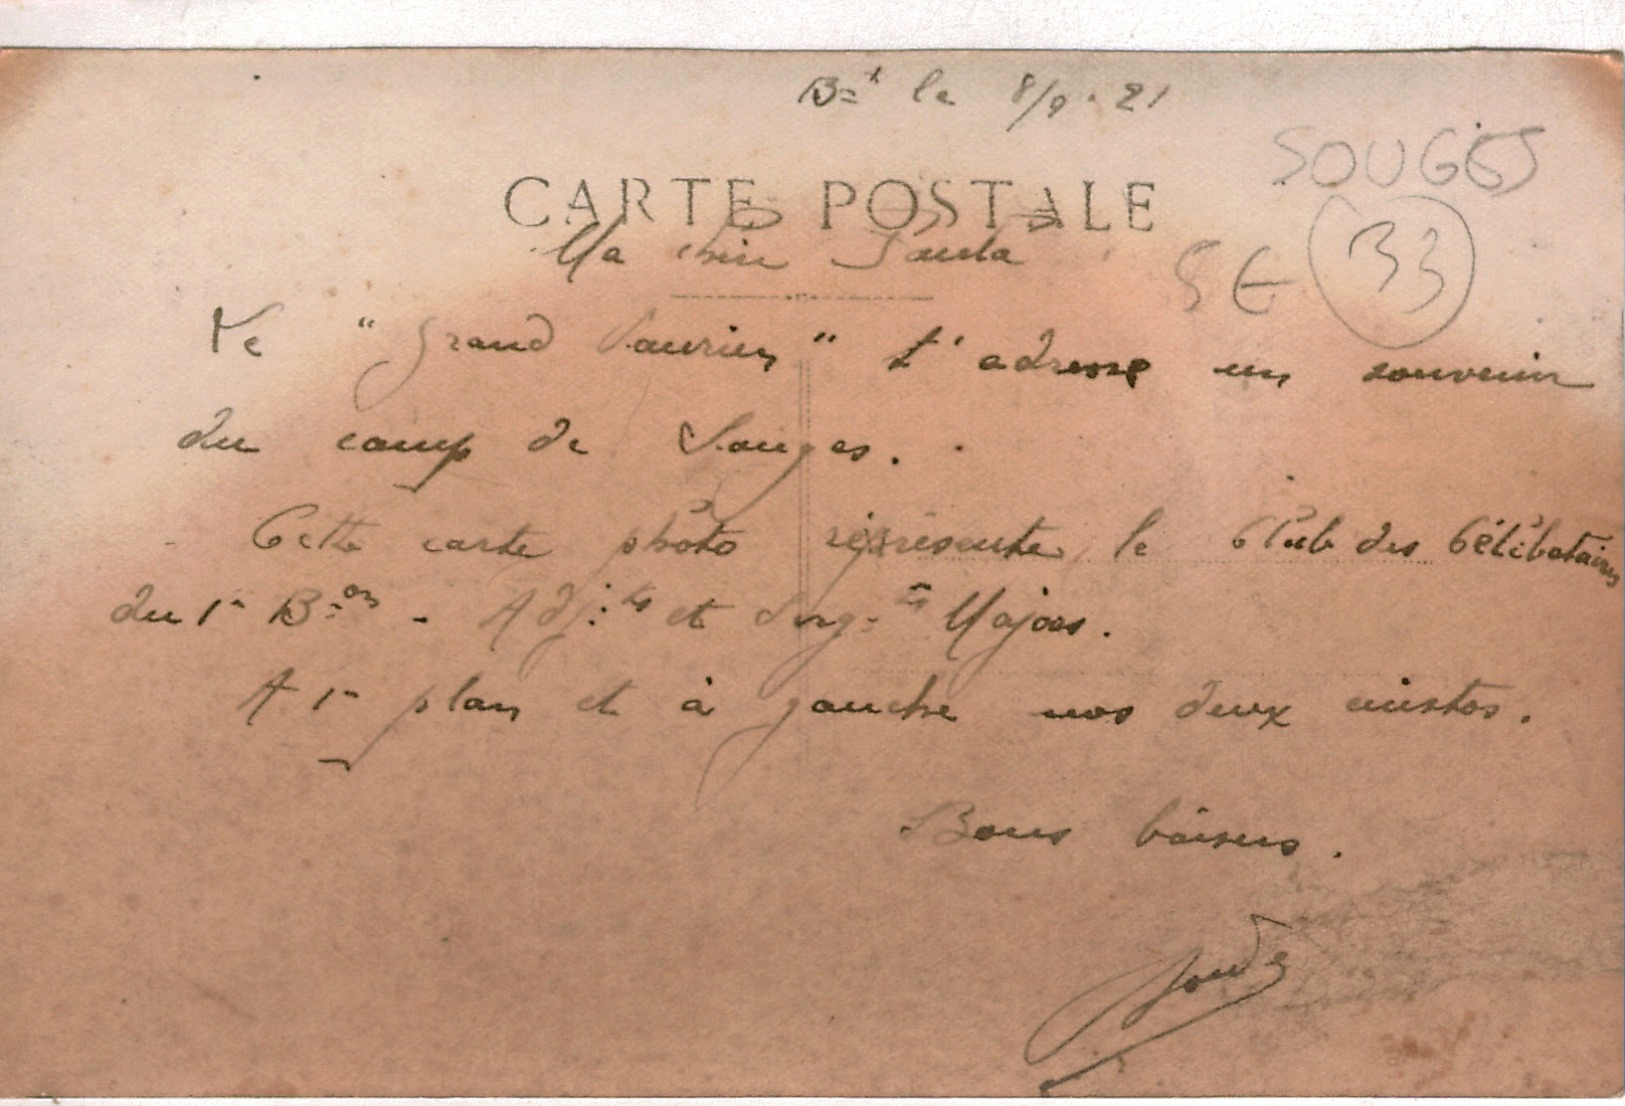 B=t le 8/9.21
SOUGES
CARTE POSTALE
33
5€
Ma chère Paula
Le "Grand Vaurien" t'adresse un souvenir
du camp de Souges.
Cette carte photo représente le Club des Célibataires
du 1er B=on - Adj:ts et Serg=ts Majors.
A 1er plan et à gauche nos deux cuistos.
Bons baisers.